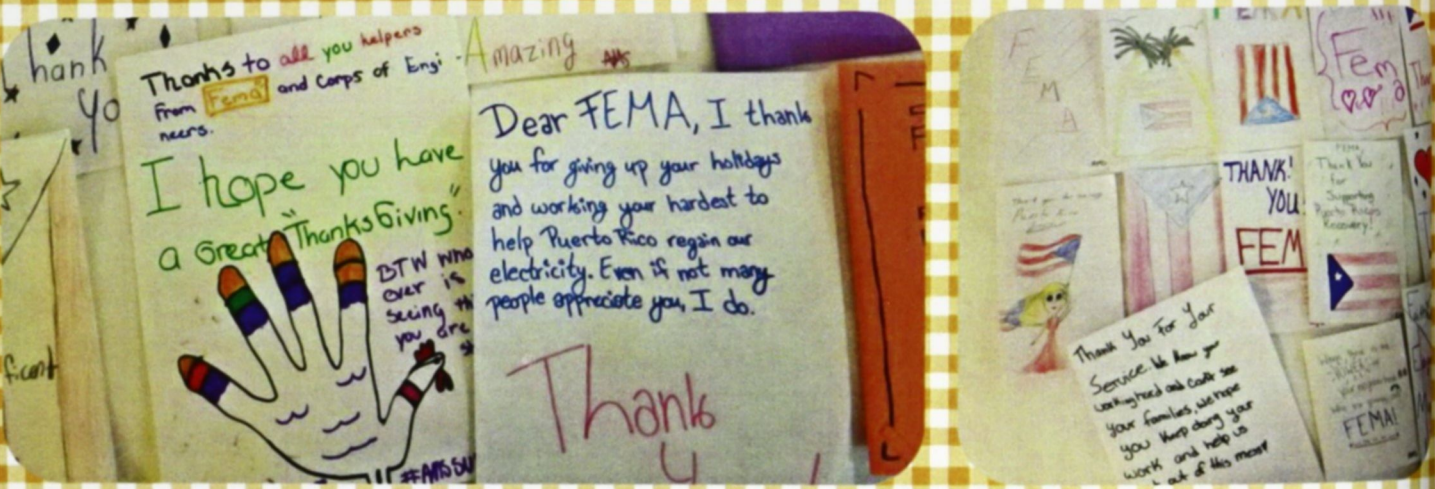 Thank
Yo
ficent
Thanks to all you helpers
From Fema and Corps of Engi
neers.
I hope you have
a Great "ThanksGiving".
BTW who
ever is
seeing thi
you are
#AMSSU
Amazing
Dear FEMA, I thank
you for giving up your holidays
and working your hardest to
help Puerto Rico regain our
electricity. Even if not many
people appreciate you, I do.
Thank
y
F
E
M
A
FEMA
Fem
a
THANK!
YOU
FEM
Thank You
for
Supporting
Puerto Rico's
Recovery!
Thank You For Your
Service. We know your
working hard and can't see
your families, we hope
you keep doing your
work and help us
out of this mess!
FEMA!